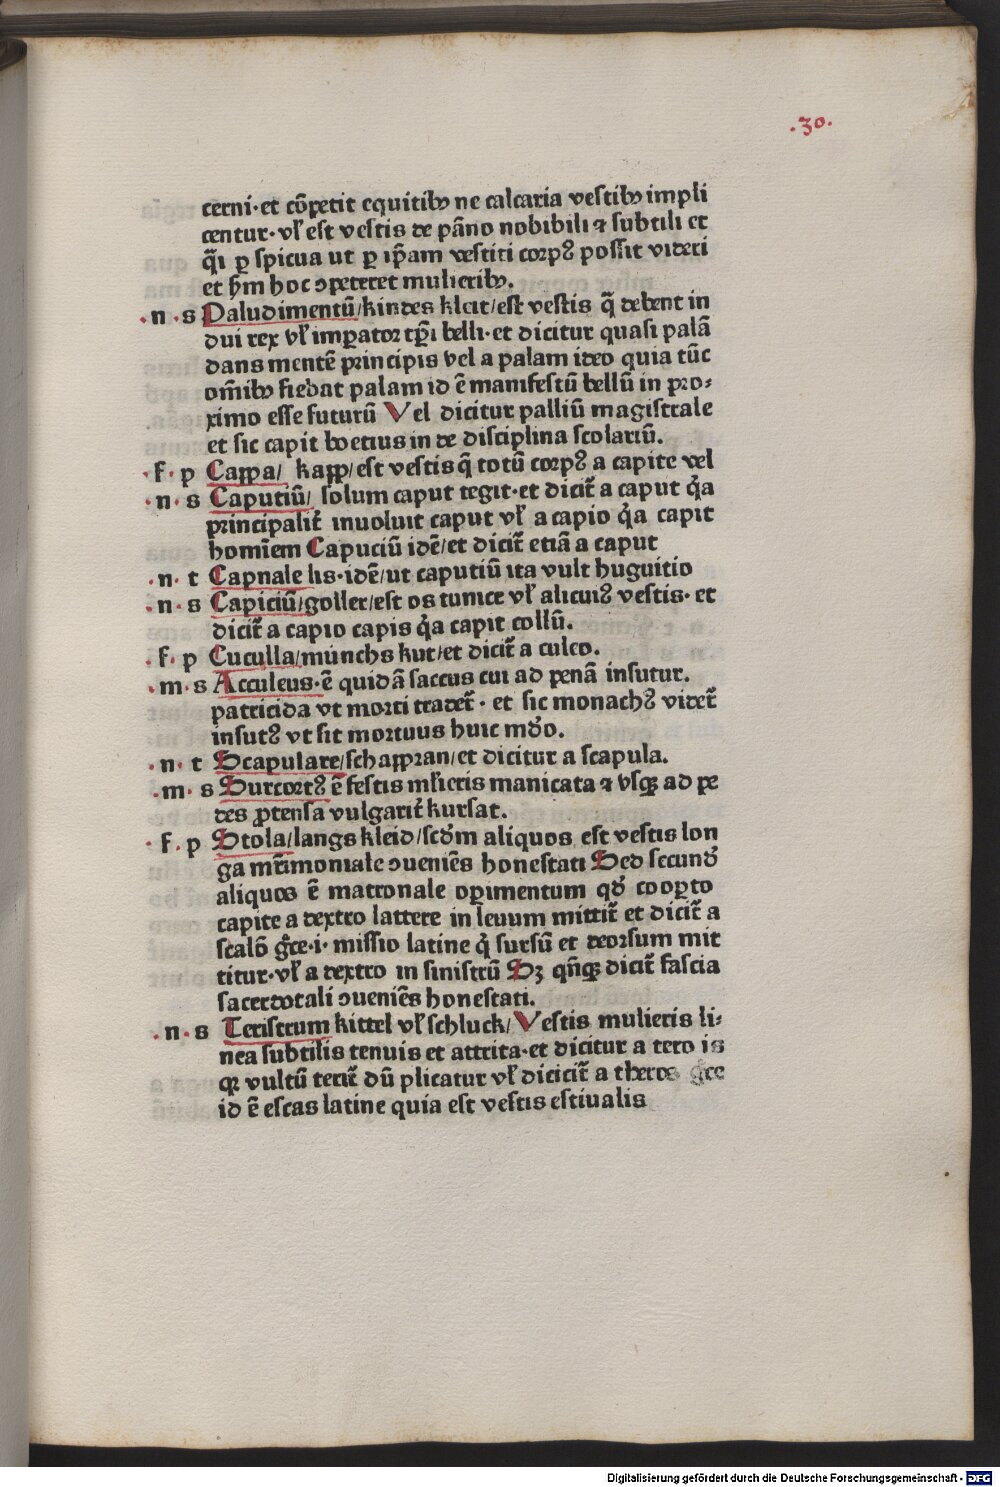 .30.
cerni·et cōpetit equitibꝰ ne calcaria vestibꝰ impli
centur·vl̕ est vestis de pāno nobibili ⁊ subtili et
q̄i ꝑ spicua ut ꝑ ip̄am vestiti corpꝰ possit videri
et hm̄ hoc ↄpeteret mulieribꝰ.
·n·s Paludimentū/kindes kleit/est vestis q̄ debent in
dui rex vl̕ imꝑator tꝑi belli·et dicitur quasi palā
dans mentē principis vel a palam ideo quia tūc
om̄ibꝰ fiebat palam id ē manifestū bellū in pro⸗
ximo esse futurū Vel dicitur palliū magistrale
et sic capit boetius in de disciplina scolariū.
·f·p Cappa/ kapp/est vestis q̄ totū corpꝰ a capite vel
·n·s Caputiū/ solum caput tegit·et dicit̄ a caput q̓a
principalit̄ inuoluit caput vl̕ a capio q̓a capit
homīem Capuciū idē/et dicit̄ etiā a caput
·n·t Capnale lis·idē/ut caputiū ita vult huguitio
·n·s Capiciū/goller/est os tunice vl̕ alicuiꝰ vestis·et
dicit̄ a capio capis q̓a capit collū.
·f·p Cuculla/munchs kut/et dicit̄ a culeo.
·m·s Acculeus·ē quidā saccus cui ad penā insutur.
patricida vt morti tradet̄·et sic monachꝰ videt̄
insutꝰ vt sit mortuus huic mdo.
·n·t Scapulare/schappran/et dicitur a scapula.
·m·s Surcortꝰ ē festis ml̕ieris manicata ⁊ vsqꝫ ad pe
des ꝓtensa vulgarit̄ kursat.
·f·p Stola/langs kleid/scd̄m aliquos est vestis lon
ga mr̄imoniale ↄueniēs honestati Sed secund̄
aliquos ē matronale oꝑimentum qd̄ cooꝑto
capite a dextro lattere in leuum mittit̄ et dicit̄ a
scalō gr̄ce·i·missio latine q̓ sursū et deorsum mit
titur·vl̕ a dextro in sinistrū Sꝫ qn̄qꝫ dicit̄ fascia
sacerdotali ↄueniēs honestati.
·n·s Teristrum kittel vl̕ schluck/Vestis mulieris li⸗
nea subtilis tenuis et attrita·et dicitur a tero is
qꝛ vultū terit̄ dū plicatur vl̕ dicicit̄ a theros gr̄ce
id ē escas latine quia est vestis estiualis
Digitalisierung gefördert durch die Deutsche Forschungsgemeinschaft - DFG